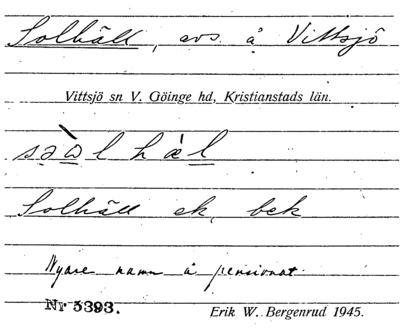 Solhäll, avs. å Vittsjö
Vittsjö sn V. Göinge hd, Kristianstads län.
səὼlhæ̀l
Solhäll ek, bek
Nyare namn å pensionat.
Nr 5393. Erik W. Bergenrud 1945.